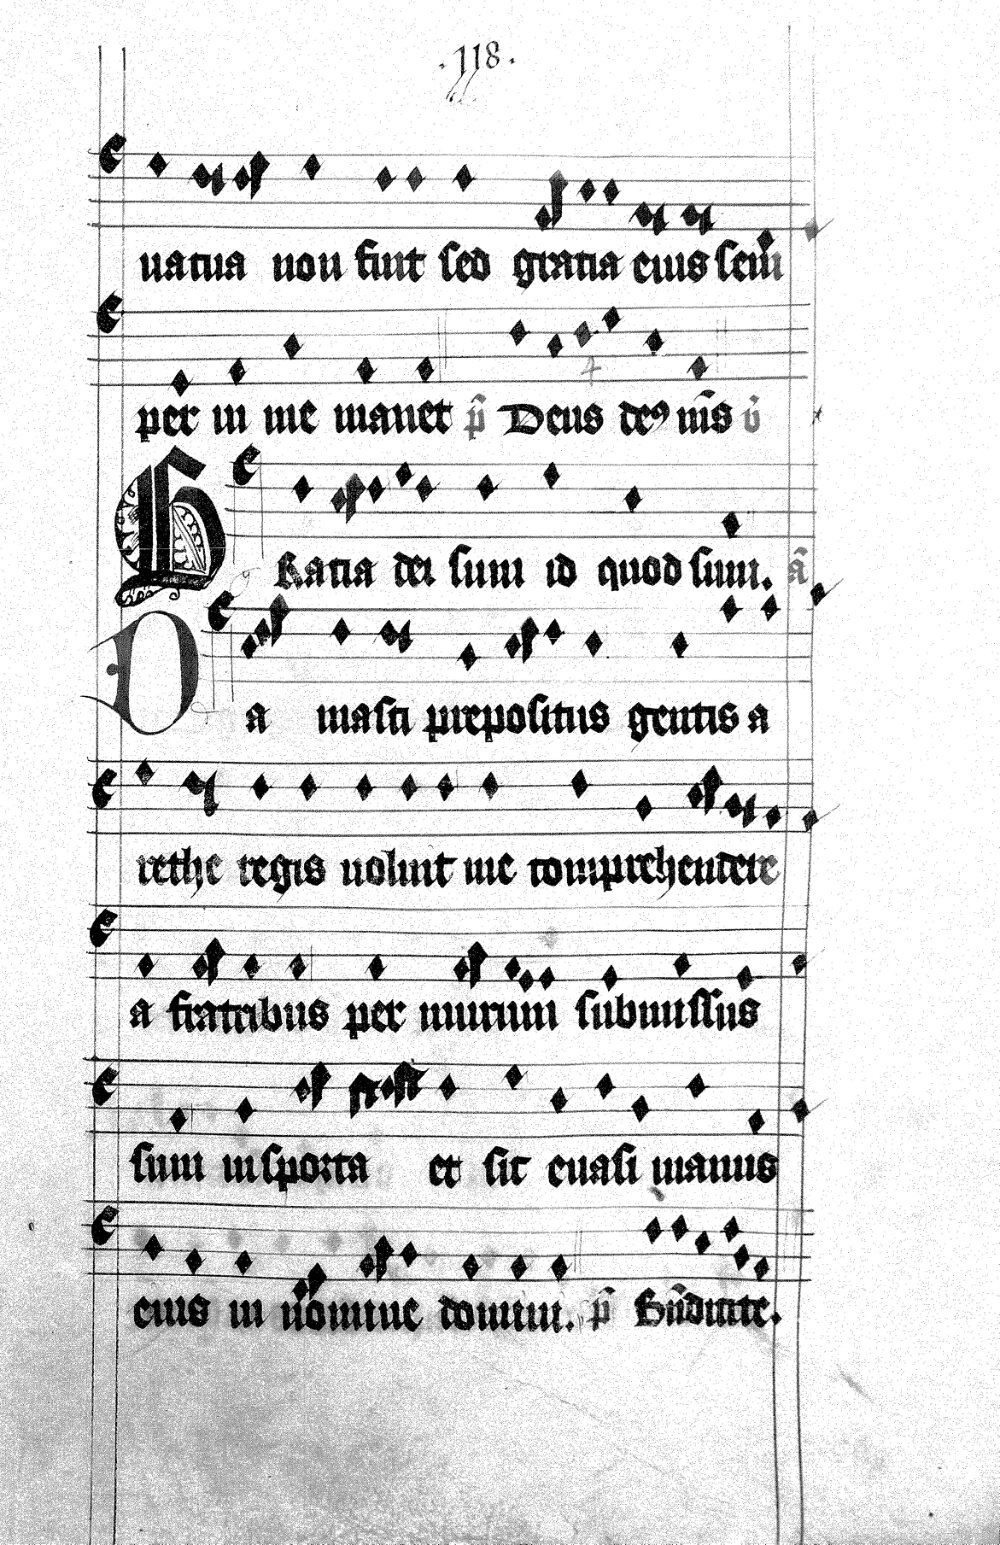 .118.
uatua non fuit sed gratia eius sem̄
per in me manet p̄ Deus deꝰ m̄s v̄
GRatia dei sum id quod sum. ā
Da masci prepositus gentis a
rethe regis uoluit me comprehendere
a fratribus per murum submissus
sum in sporta et sic euasi manus
eius in nomine domini. p̄ Bn̄dicite.